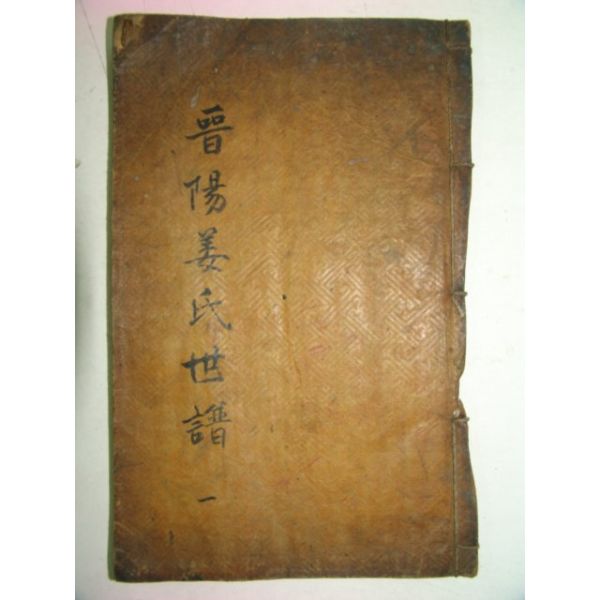 晉陽姜氏世譜 一